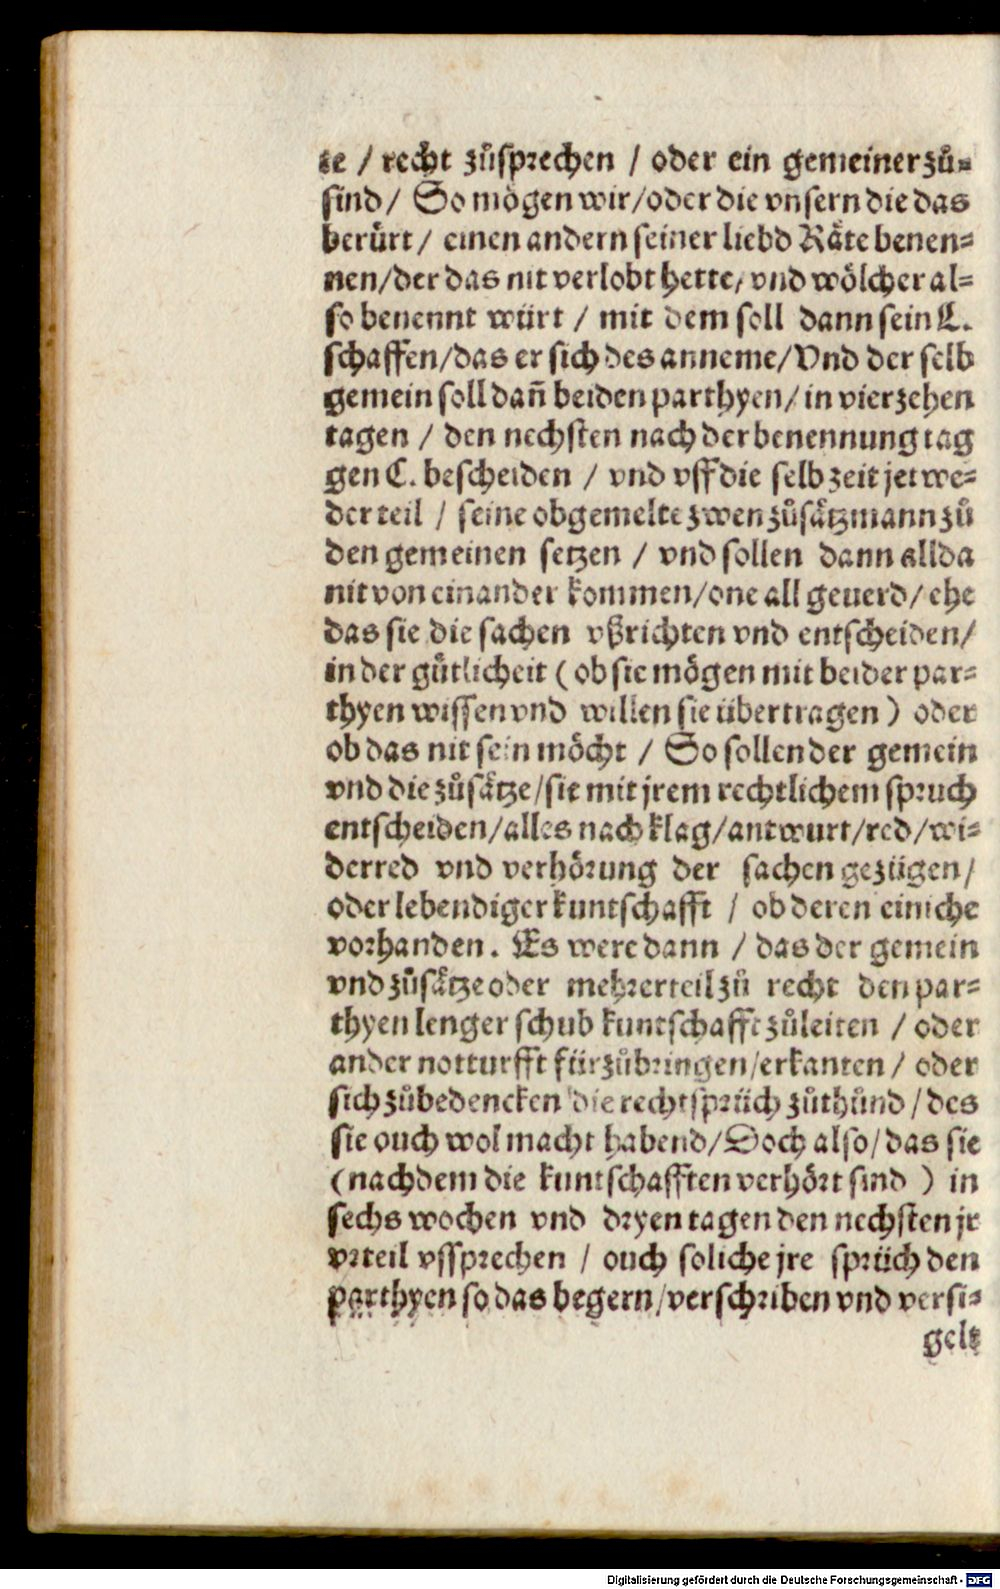 te / recht zůsprechen / oder ein gemeiner zů⸗
sind / So mögen wir/oder die vnsern die das
berürt / einen andern seiner liebd Räte benen⸗
nen/der das nit verlobt hette, vnd wölcher al⸗
so benennt würt / mit dem soll dann sein L.
schaffen/das er sich des anneme/Vnd der selb
gemein soll dañ beiden parthyen/ in vierzehen
tagen / den nechsten nach der benennung tag
gen C. bescheiden / vnd vff die selb zeit jetwe⸗
der teil / seine obgemelte zwen zůsätzmann zů
den gemeinen setzen / vnd sollen dann allda
nit von einander kommen/one all geuerd/ ehe
das sie die sachen vßrichten vnd entscheiden/
in der gůtlicheit ( ob sie mögen mit beider par⸗
thyen wissen vnd willen sie übertragen ) oder
ob das nit sein möcht / So sollen der gemein
vnd die zůsätze/sie mit jrem rechtlichem spruch
entscheiden/alles nach klag/antwurt/red/wi⸗
derred vnd verhörung der sachen gezügen/
oder lebendiger kuntschafft / ob deren einiche
vorhanden. Es were dann / das der gemein
vnd zůsätze oder mehrerteil zů recht den par⸗
thyen lenger schub kuntschafft zůleiten / oder
ander notturfft fürzůbringen/erkanten / oder
sich zůbedencken die rechtsprüch zůthůnd / des
sie ouch wol macht habend/Doch also/das sie
(nachdem die kuntschafften verhört sind ) in
sechs wochen vnd dryen tagen den nechsten jr
vrteil vssprechen / ouch soliche jre sprüch den
parthyen so das begern/verschriben vnd versi⸗
gelt
Digitalisierung gefördert durch die Deutsche Forschungsgemeinschaft - DFG